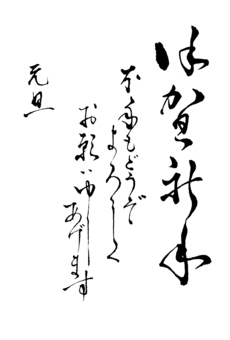 恭賀新年
本年もどうぞ
よろしく
お願い申し
あげます
元旦